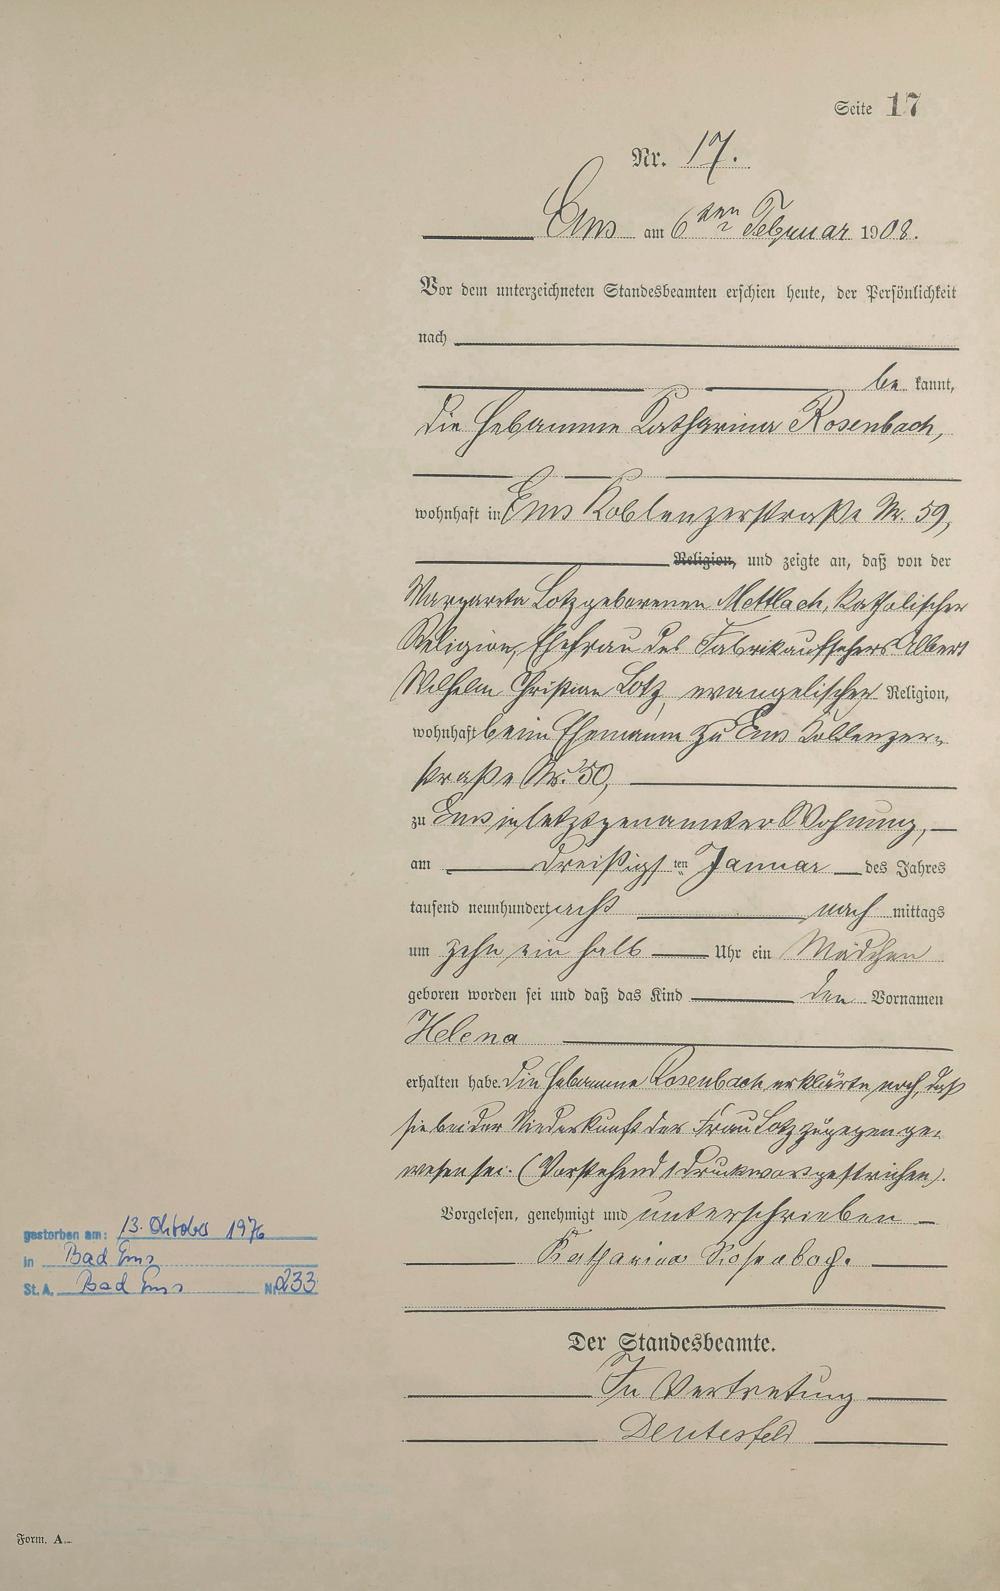 Seite 17
Nr. 17.
Ems am 6ten Februar 1908.
Vor dem unterzeichneten Standesbeamten erschien heute, der Persönlichkeit
nach
be kannt,
die Hebamme Katharina Rosenbach,
wohnhaft in Ems Koblenzerstraße Nr. 59,
Religion, und zeigte an, daß von der
Margareta Lotz geborenen Mettlach, katholischer
Religion, Ehefrau des Fabrikaufsehers Albert
Wilhelm Christian Lotz, evangelischer Religion,
wohnhaft beim Ehemann zu Ems Koblenzer-
straße Nr. 50,
zu Ems in letztgenannter Wohnung,
am dreißigsten Januar des Jahres
tausend neunhundert acht nach mittags
um zehn ein halb Uhr ein Mädchen
geboren worden sei und daß das Kind den Vornamen
Helena
erhalten habe. Die Hebamme Rosenbach erklärte noch, daß
sie bei der Niederkunft der Frau Lotz zugegen ge-
wesen sei. (Vorstehend 1 Druckwort gestrichen).
Vorgelesen, genehmigt und unterschrieben
Katharina Rosenbach.
Der Standesbeamte.
In Vertretung
Deutesfeld
gestorben am: 13. Oktober 1976
in Bad Ems
St. A. Bad Ems Nr. 233
Form. A.